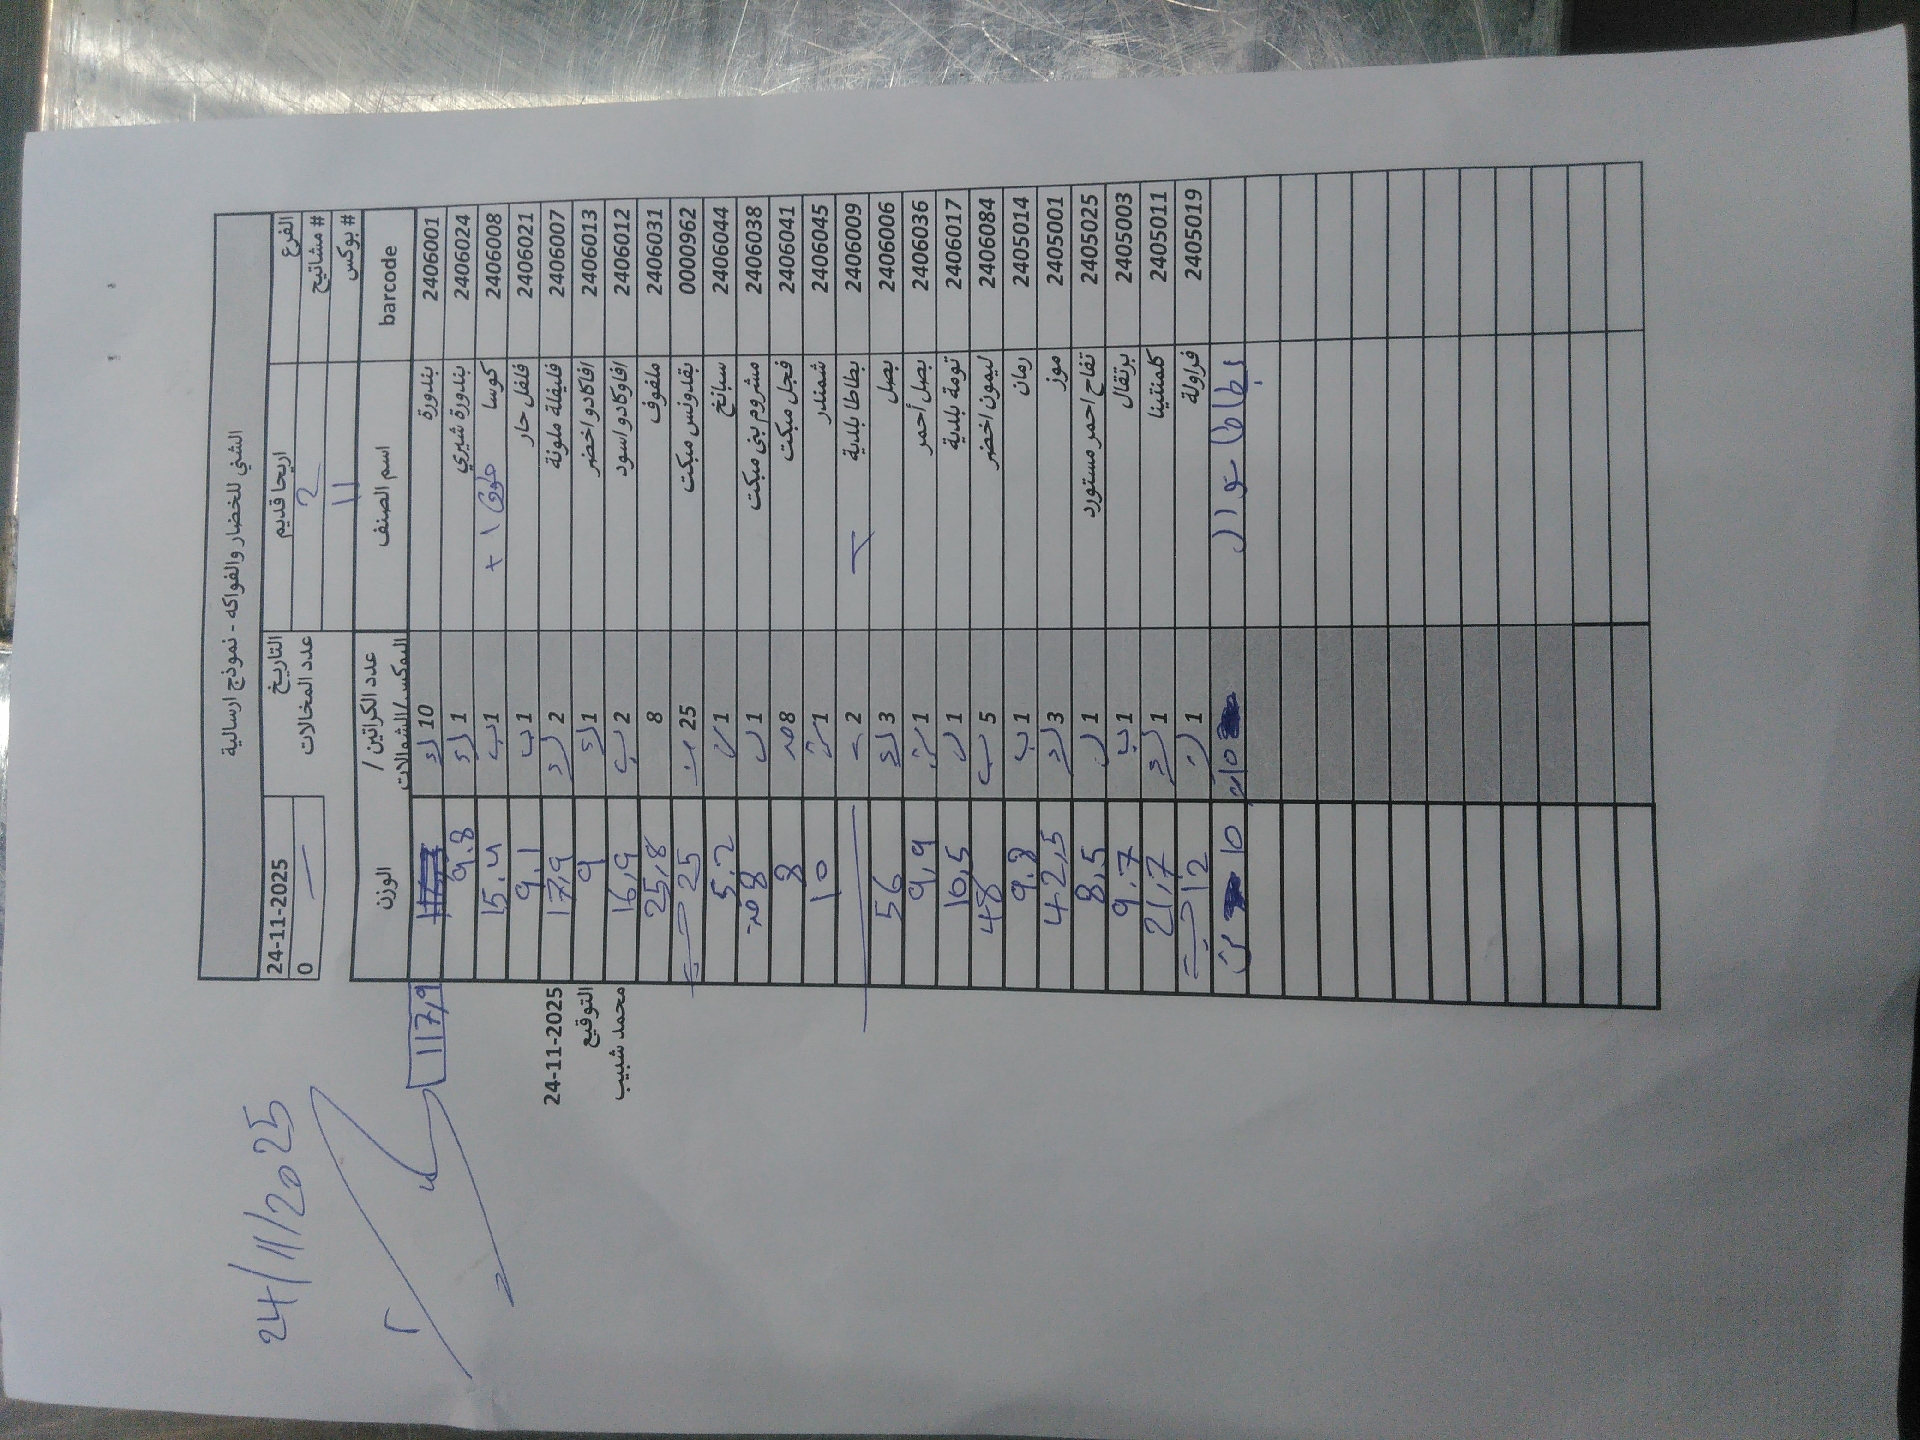 الشني للخضار والفواكه - نموذج ارسالية
الفرع اريحا قديم التاريخ 24-11-2025
# مشاتيح 2 عدد المخالات 0
# بوكس 11
barcode اسم الصنف عدد الكراتين / البوكس/الشوالات الوزن
2406001 بندورة 10 117,9
2406024 بندورة شيري 1 9.8
2406008 كوسا + 1 1 15.4
2406021 فلفل حار 1 9.1
2406007 فليفلة ملونة 2 17,9
2406013 افاكادو اخضر 1 9
2406012 افاوكادو اسود 2 16,9
2406031 ملفوف 8 25,8
0000962 بقدونس مبكت 25 25
2406044 سبانخ 1 5.2
2406038 مشروم بني مبكت 1 8
2406041 فجل مبكت 8 8
2406045 شمندر 1 10
2406009 بطاطا بلدية 2
2406006 بصل 3 56
2406036 بصل أحمر 1 9,9
2406017 تومة بلدية 1 10,5
2406084 ليمون اخضر 5 48
2405014 رمان 1 9.8
2405001 موز 3 42,5
2405025 تفاح احمر مستورد 1 8,5
2405003 برتقال 1 9.7
2405011 كلمنتينا 1 21,7
2405019 فراولة 1 12
بطاطا 10
24-11-2025
التوقيع
محمد شبيب
24/11/2025